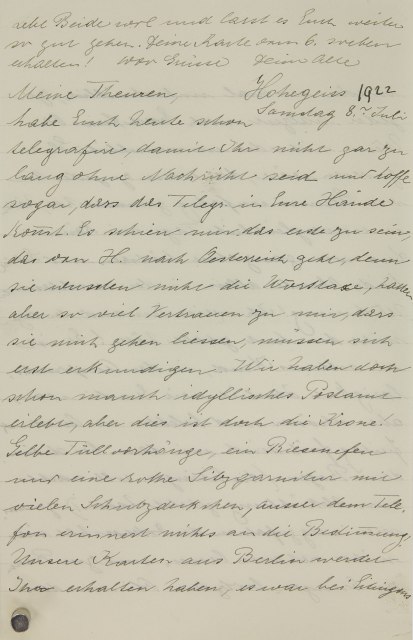 lebt Beide wol und lasst es Euch weiter
so gut gehen. Deine Karte vom 6. soeben
erhalten! 1000 Küsse Dein Alle
Meine Theuren, Hohegeiss 1922
Samstag 8. Juli
habe Euch heute schon
telegrafirt, damit Ihr nicht gar zu
lang ohne Nachricht seid und hoffe
sogar, dass das Telegr. in Eure Hände
kommt. Es schien mir das erste zu sein,
das von H. nach Oesterreich geht, denn
sie wussten nicht die Worttaxe, hatten
aber so viel Vertrauen zu mir, dass
sie mich gehen liessen, müssen sich
erst erkundigen. Wir haben doch
schon manch idyllisches Postamt
erlebt, aber dies ist doch die Krone!
Gelbe Tüllvorhänge, ein Riesenofen
und eine rothe Sitzgarnitur mit
vielen Schutzdeckchen, ausser dem Tele-
fon erinnert nichts an die Bestimmung.
Unsere Karten aus Berlin werdet
Ihr erhalten haben, es war bei